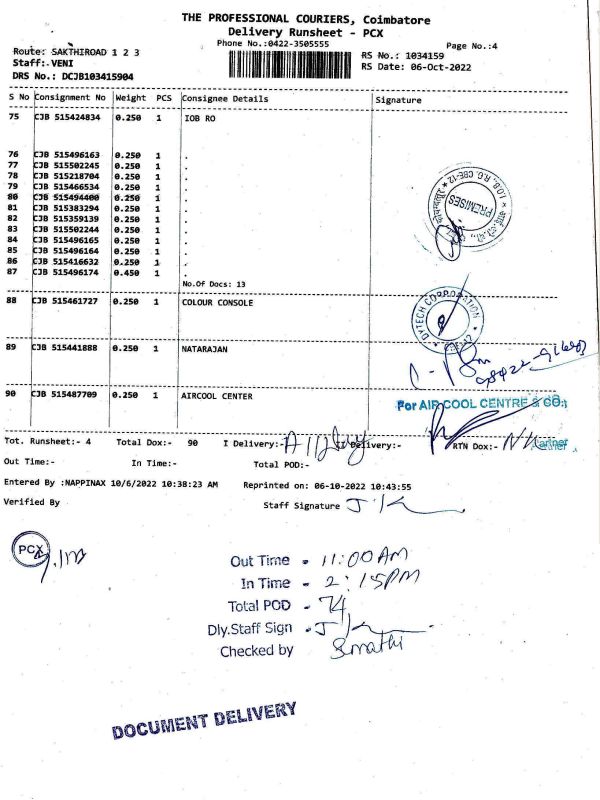 THE PROFESSIONAL COURIERS, Coimbatore
Delivery Runsheet - PCX
Phone No.:0422-3505555
Page No.:4
Route: SAKTHIROAD 1 2 3
RS No.: 1034159
Staff:.VENI
RS Date: 06-Oct-2022
DRS No.: DCJB103415904
S No Consignment No Weight PCS Consignee Details Signature
75 CJB 515424834 0.250 1 IOB RO
76 CJB 515496163 0.250 1 .
77 CJB 515502245 0.250 1 .
78 CJB 515218704 0.250 1 .
79 CJB 515466534 0.250 1 .
80 CJB 515494400 0.250 1 .
81 CJB 515383294 0.250 1 .
82 CJB 515359139 0.250 1 .
83 CJB 515502244 0.250 1 .
84 CJB 515496165 0.250 1 .
85 CJB 515496164 0.250 1 .
86 CJB 515416632 0.250 1 .
87 CJB 515496174 0.450 1 .
No.Of Docs: 13
PREMISES
I.O.B., R.O. CBE-12
88 CJB 515461727 0.250 1 COLOUR CONSOLE
DYTECH CORPORATION
89 CJB 515441888 0.250 1 NATARAJAN
90 CJB 515487709 0.250 1 AIRCOOL CENTER
For AIR COOL CENTRE & CO.,
Partner
Tot. Runsheet:- 4 Total Dox:- 90 I Delivery:- II Delivery:- RTN Dox:-
Out Time:- In Time:- Total POD:-
Entered By :NAPPINAX 10/6/2022 10:38:23 AM Reprinted on: 06-10-2022 10:43:55
Verified By Staff Signature
PCX
Out Time - 11:00 AM
In Time - 2:15PM
Total POD - 74
Dly.Staff Sign -
Checked by
DOCUMENT DELIVERY